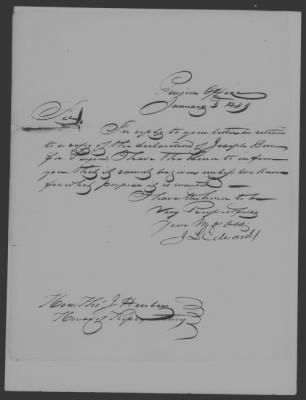 Pension Office
January 3 1849
Sir,
In reply to your letter in relation
to a copy of the declaration of Joseph
for Pension, I have the honor to inform
you that it cannot be given unless we know
for which purpose it is wanted
I have the honor to be
Very Respectfully
Your
J L Edwards
Hon. Thos J. Henley
House of Representatives